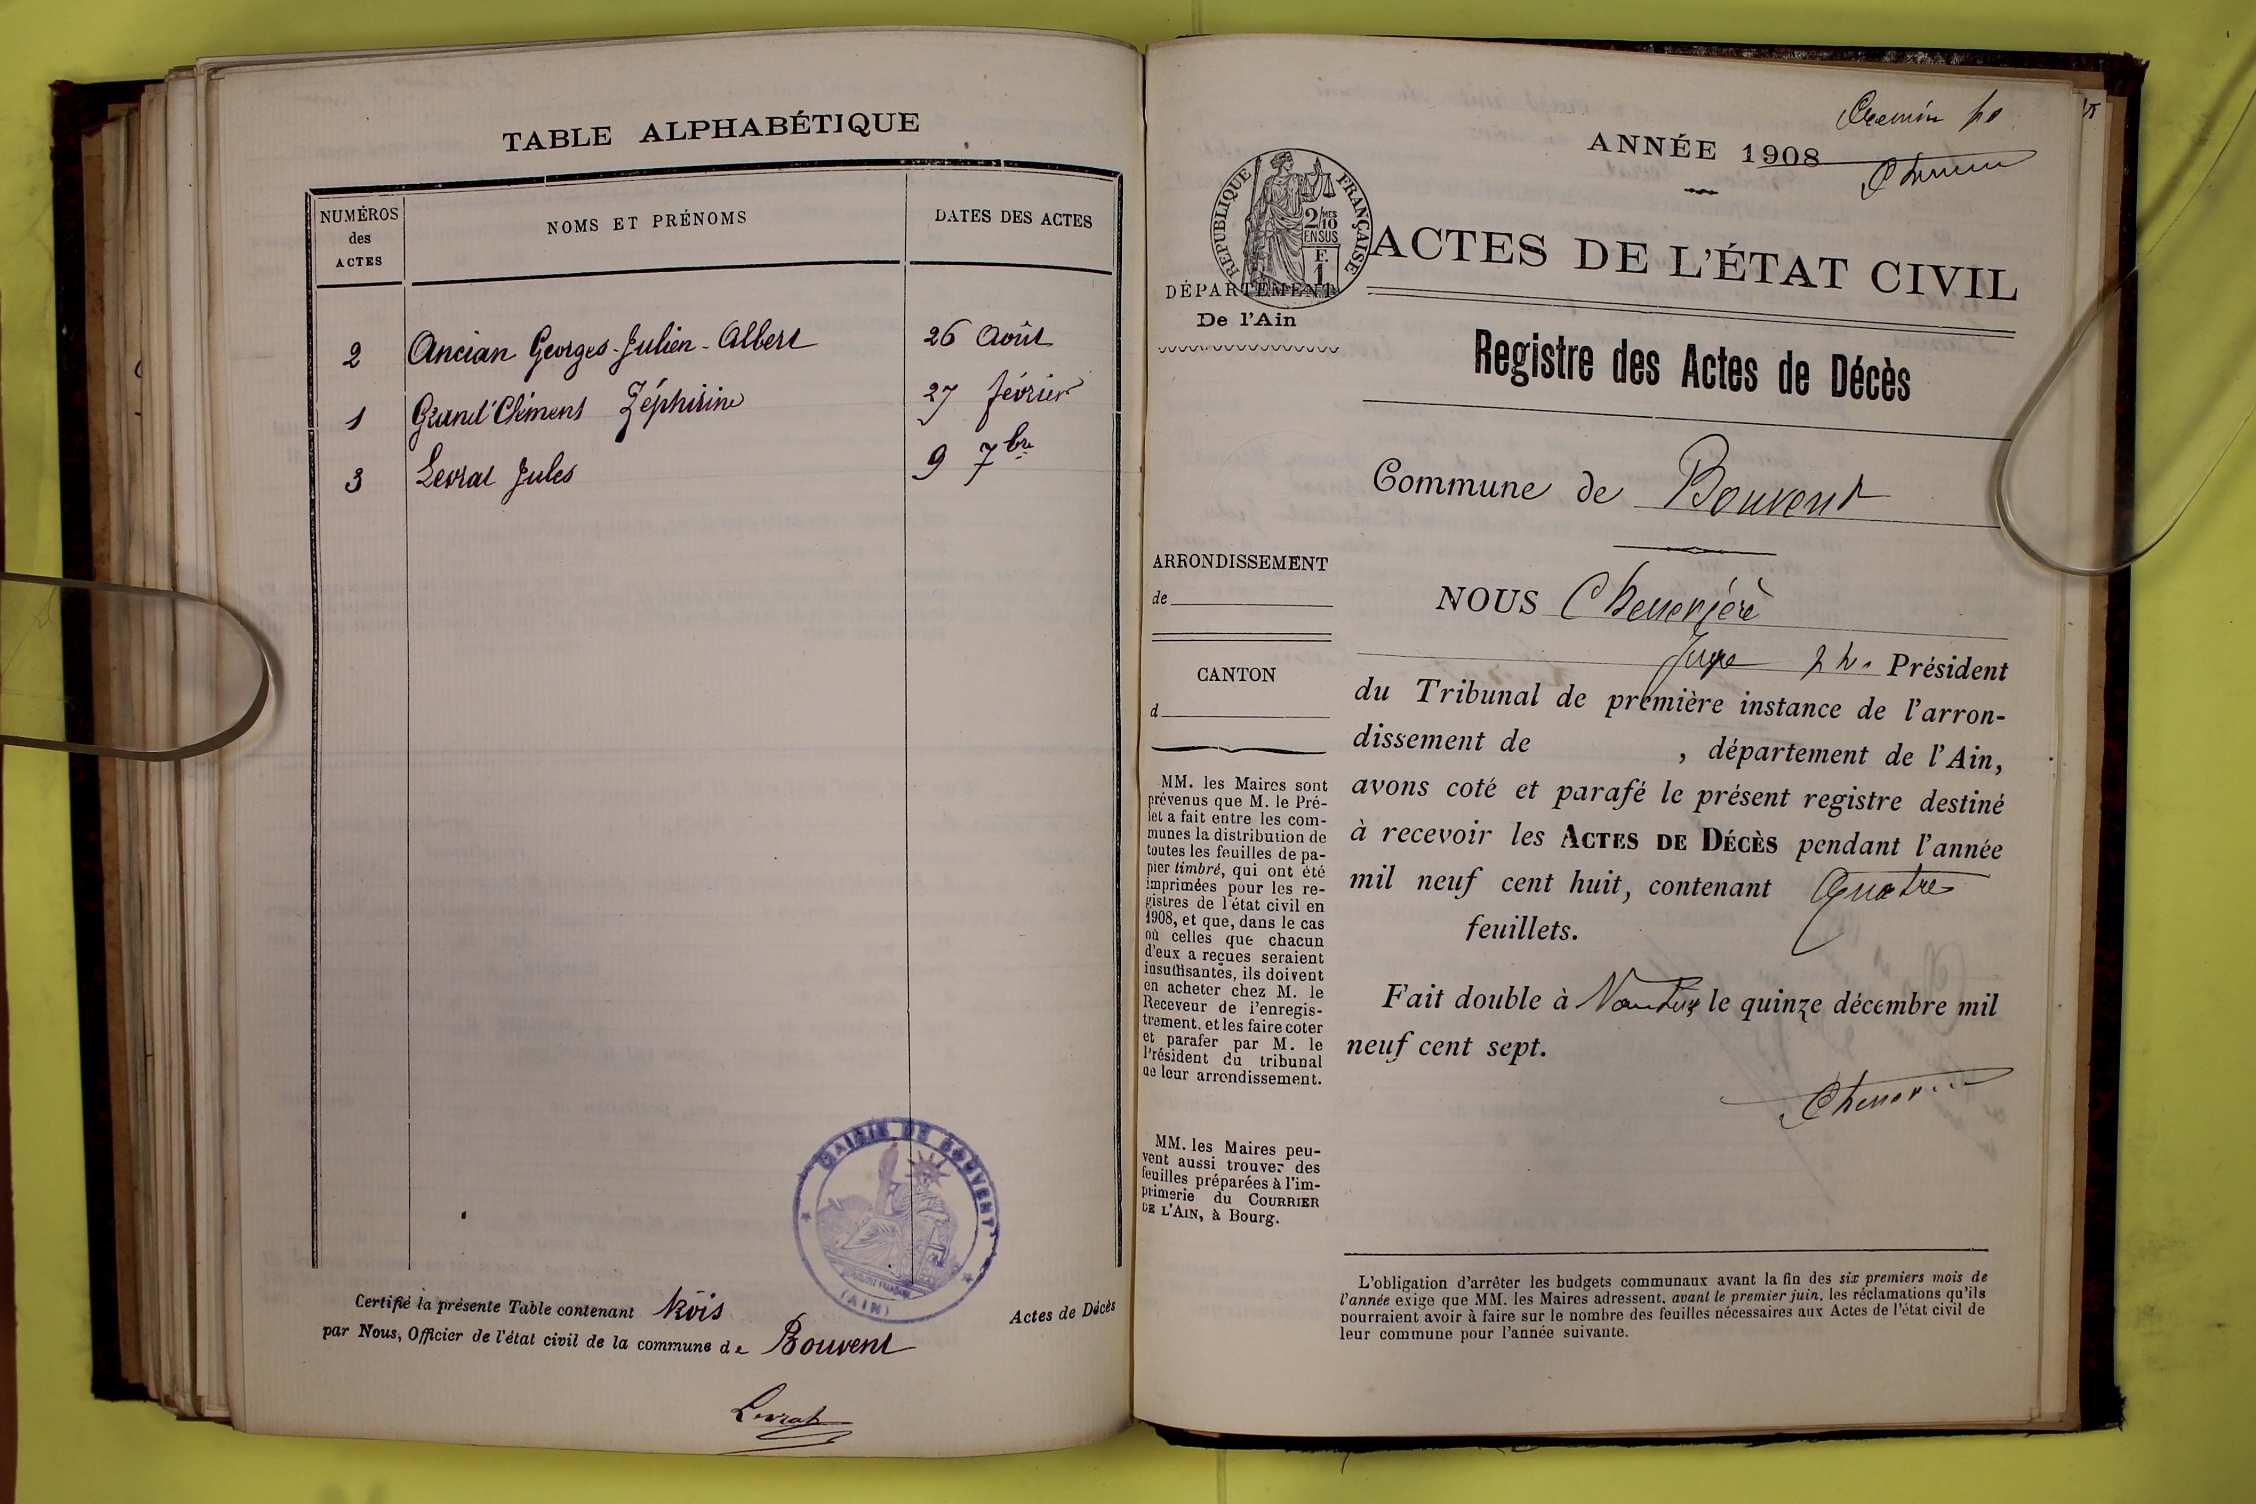 TABLE ALPHABÉTIQUE
NUMÉROS
des
ACTES
NOMS ET PRÉNOMS
DATES DES ACTES
2 Ancian Georges-Julien-Albert 26 Août
1 Grand'Clément Zéphirine 27 février
3 Levrat Jules 9 7bre
MAIRIE DE BOUVENT
(AIN)
Certifié la présente Table contenant trois Actes de Décès
par Nous, Officier de l'état civil de la commune de Bouvent
Levrat
ANNÉE 1908
RÉPUBLIQUE FRANÇAISE
2/10MES
EN SUS
F.
1
ACTES DE L'ÉTAT CIVIL
DÉPARTEMENT
De l'Ain
Registre des Actes de Décès
Commune de Bouvent
ARRONDISSEMENT
de
CANTON
d
MM. les Maires sont
prévenus que M. le Pré-
fet a fait entre les com-
munes la distribution de
toutes les feuilles de pa-
pier timbré, qui ont été
imprimées pour les re-
gistres de l'état civil en
1908, et que, dans le cas
où celles que chacun
d'eux a reçues seraient
insuffisantes, ils doivent
en acheter chez M. le
Receveur de l'enregis-
trement, et les faire coter
et parafer par M. le
Président du tribunal
de leur arrondissement.
MM. les Maires peu-
vent aussi trouver des
feuilles préparées à l'im-
primerie du COURRIER
DE L'AIN, à Bourg.
NOUS
Juge Président
du Tribunal de première instance de l'arron-
dissement de , département de l'Ain,
avons coté et parafé le présent registre destiné
à recevoir les ACTES DE DÉCÈS pendant l'année
mil neuf cent huit, contenant Quatre
feuillets.
Fait double à Nantua le quinze décembre mil
neuf cent sept.
L'obligation d'arrêter les budgets communaux avant la fin des six premiers mois de
l'année exige que MM. les Maires adressent, avant le premier juin, les réclamations qu'ils
pourraient avoir à faire sur le nombre des feuilles nécessaires aux Actes de l'état civil de
leur commune pour l'année suivante.